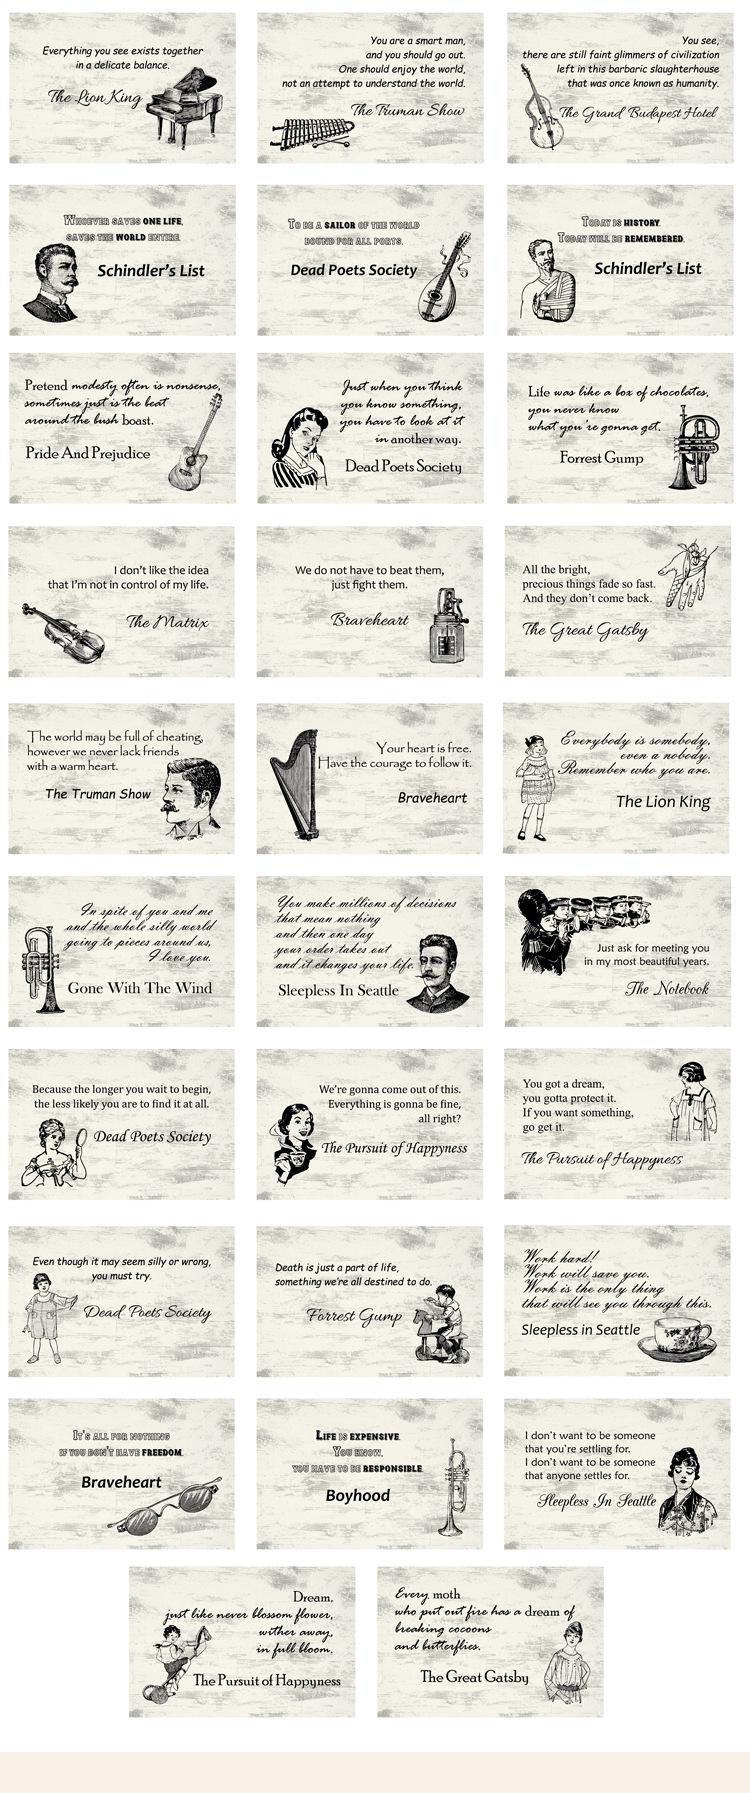 Everything you see exists together
in a delicate balance.
The Lion King
You are a smart man,
and you should go out.
One should enjoy the world,
not an attempt to understand the world.
The Truman Show
You see,
there are still faint glimmers of civilization
left in this barbaric slaughterhouse
that was once known as humanity.
The Grand Budapest Hotel
WHOEVER SAVES ONE LIFE,
SAVES THE WORLD ENTIRE.
Schindler's List
TO BE A SAILOR OF THE WORLD
BOUND FOR ALL PORTS.
Dead Poets Society
TODAY IS HISTORY.
TODAY WILL BE REMEMBERED.
Schindler's List
Pretend modesty often is nonsense,
sometimes just is the beat
around the bush boast.
Pride And Prejudice
Just when you think
you know something,
you have to look at it
in another way.
Dead Poets Society
Life was like a box of chocolates,
you never know
what you're gonna get.
Forrest Gump
I don't like the idea
that I'm not in control of my life.
The Matrix
We do not have to beat them,
just fight them.
Braveheart
All the bright,
precious things fade so fast.
And they don't come back.
The Great Gatsby
The world may be full of cheating,
however we never lack friends
with a warm heart.
The Truman Show
Your heart is free.
Have the courage to follow it.
Braveheart
Everybody is somebody,
even a nobody.
Remember who you are.
The Lion King
In spite of you and me
and the whole silly world
going to pieces around us,
I love you.
Gone With The Wind
You make millions of decisions
that mean nothing
and then one day
your order takes out
and it changes your life.
Sleepless In Seattle
Just ask for meeting you
in my most beautiful years.
The Notebook
Because the longer you wait to begin,
the less likely you are to find it at all.
Dead Poets Society
We're gonna come out of this.
Everything is gonna be fine,
all right?
The Pursuit of Happyness
You got a dream,
you gotta protect it.
If you want something,
go get it.
The Pursuit of Happyness
Even though it may seem silly or wrong,
you must try.
Dead Poets Society
Death is just a part of life,
something we're all destined to do.
Forrest Gump
Work hard!
Work will save you.
Work is the only thing
that will see you through this.
Sleepless in Seattle
IT'S ALL FOR NOTHING
IF YOU DON'T HAVE FREEDOM.
Braveheart
LIFE IS EXPENSIVE.
YOU KNOW,
YOU HAVE TO BE RESPONSIBLE.
Boyhood
I don't want to be someone
that you're settling for.
I don't want to be someone
that anyone settles for.
Sleepless In Seattle
Dream,
just like never blossom flower,
wither away,
in full bloom.
The Pursuit of Happyness
Every moth
who put out fire has a dream of
breaking cocoons
and butterflies.
The Great Gatsby